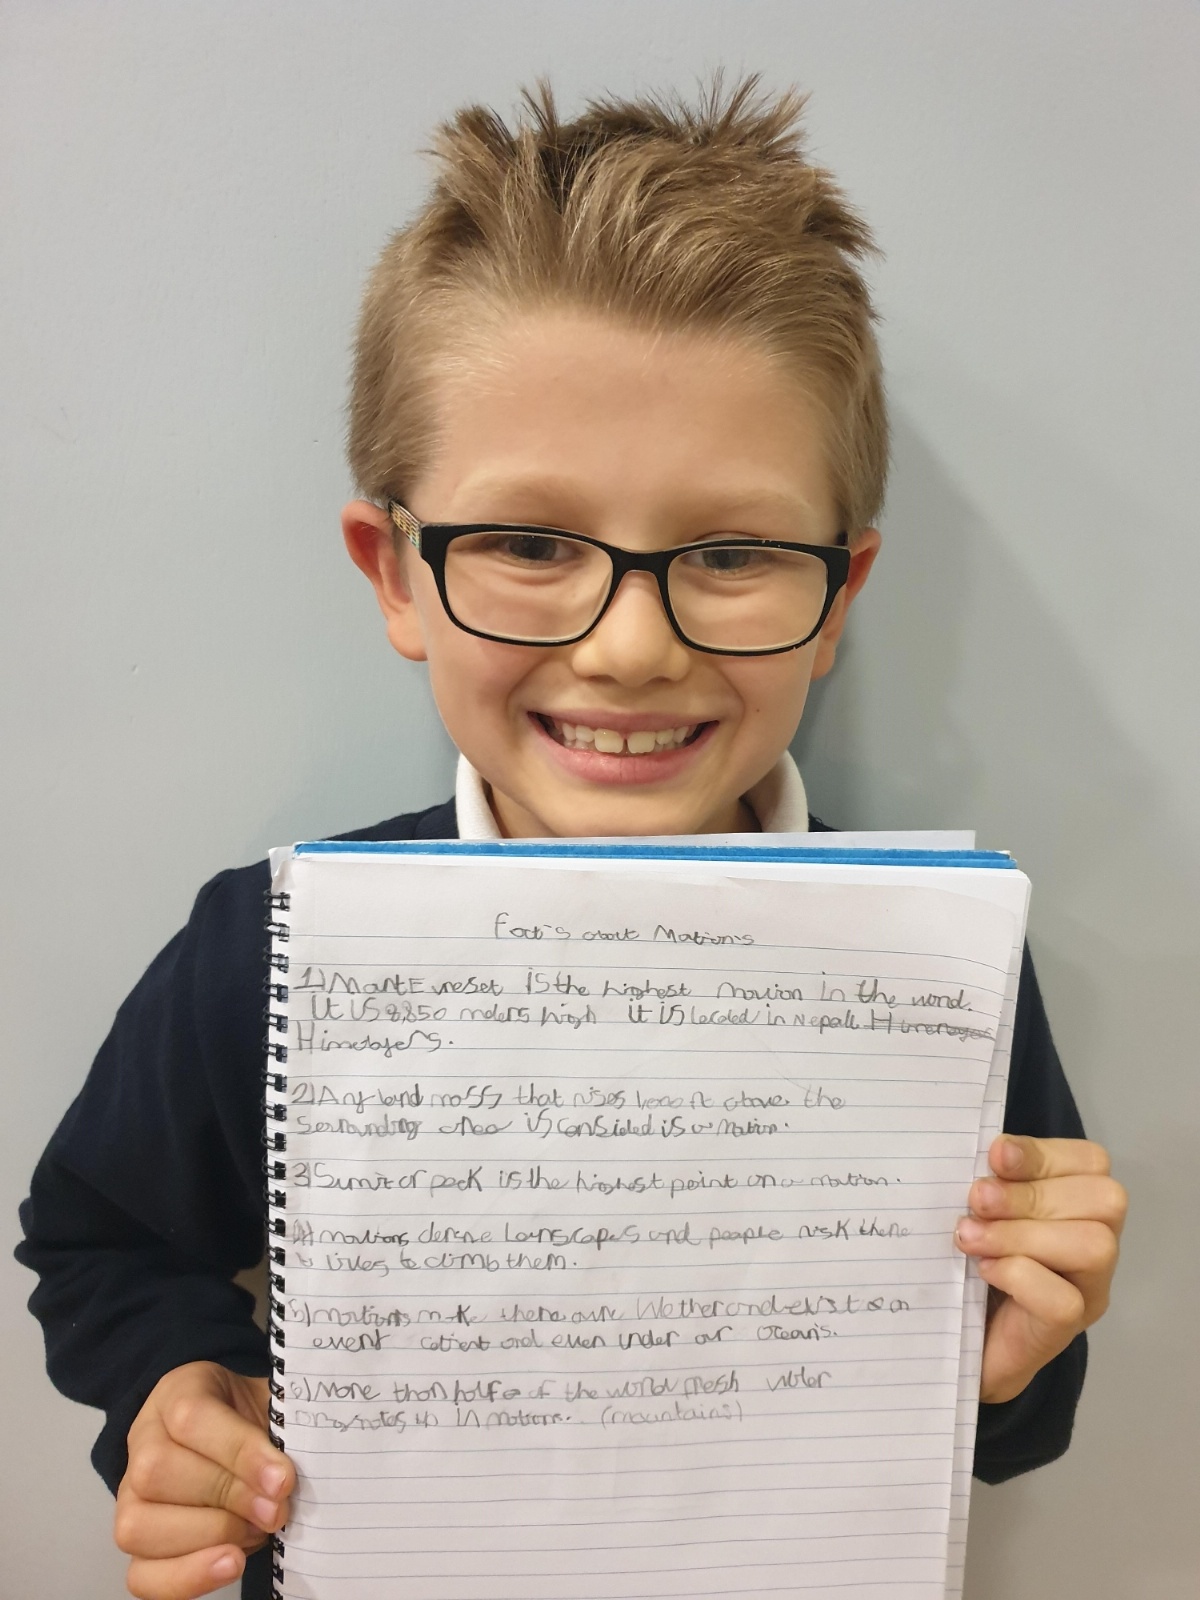 Fact's about Mation's
1) Mant Evreset is the highest moution in the world.
It is 8,850 meters high it is located in Nepall
Himelayers.
2) Any land mass that rises above the
Serrounding area is consided is a mation.
3) Sumit or peek is the highest point on a moution.
4) moutions derne Lanscapes and people risk there
lives to climb them.
5) moutions make there own Wether and exist on
event cotient and even under our Ocean's.
6) More than half of the world fresh water
in motions. (mountains)